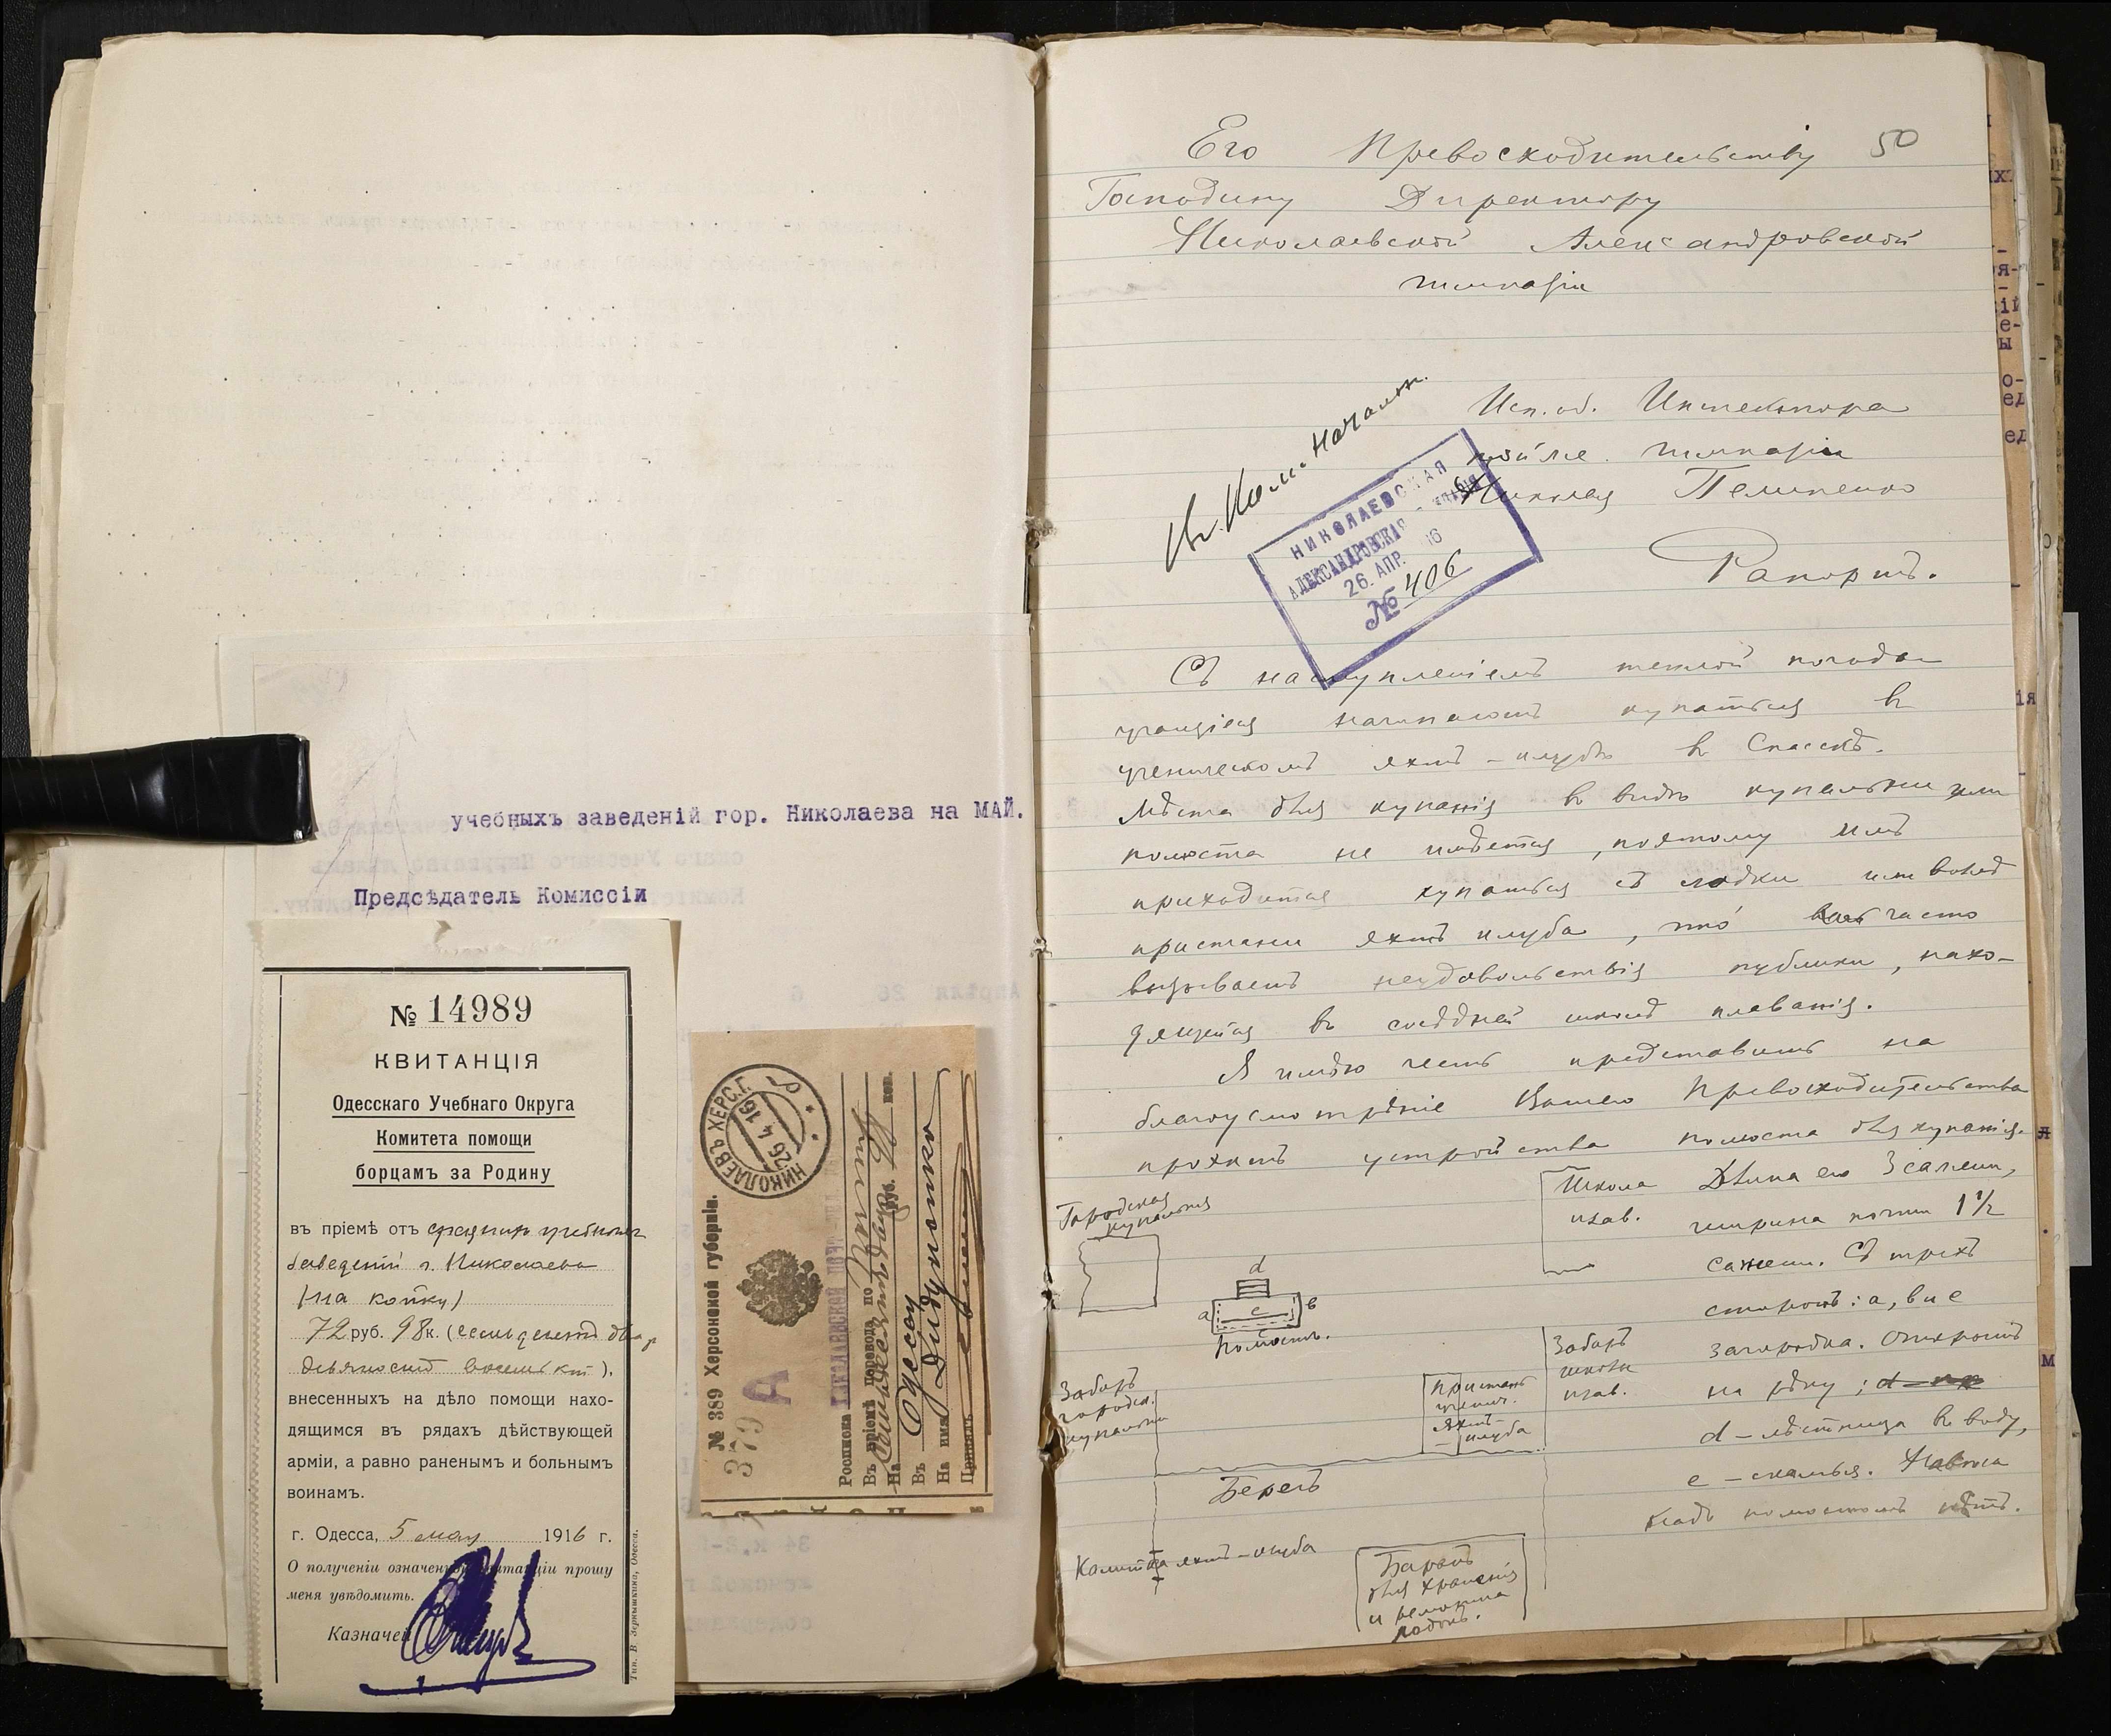 учебныхъ заведеній гор. Николаева на МАЙ.
Предсѣдатель Комиссіи
№ 14989
КВИТАНЦІЯ
Одесскаго Учебнаго Округа
Комитета помощи
борцамъ за Родину
въ пріемѣ отъ средних учебных
заведеній г. Николаева
(на койку)
72 руб. 98 к. (семьдесятъ два р
девяносто восемь коп).
внесенныхъ на дѣло помощи нахо-
дящимся въ рядахъ дѣйствующей
арміи, а равно раненымъ и больнымъ
воинамъ.
г. Одесса, 5 мая 1916 г.
О полученіи означенной квитанціи прошу
меня увѣдомить.
Казначей
Тип. В. Зернышкина, Одесса.
№ 389 Херсонской губерніи.
379 А
НИКОЛАЕВЪ ХЕРС.Г.
26 4 16
Росписка
Въ пріемѣ перевода по
На руб. коп.
Въ Одессу
На имя Дидуненко
Принялъ
50
Его Превосходительству
Господину Директору
Николаевской Александровской
гимназіи
Исп. об. Инспектора
той же гимназіи
Николая Пелипенко
Рапортъ.
НИКОЛАЕВСКАЯ
АЛЕКСАНДРОВСКАЯ
26. АПР. 16
№ 406
Съ наступленіемъ теплой погоды
учащіеся начинаютъ купаться въ
ученическомъ яхтъ-клубѣ въ Спасскѣ.
Мѣста для купанія въ видѣ купальни или
помоста не имѣется, поэтому имъ
приходится купаться съ лодки или возлѣ
пристани яхтъ клуба, что часто
вызываетъ неудовольствія публики, нахо-
дящейся въ сосѣдней школѣ плаванія.
Я имѣю честь представить на
благоусмотрѣніе Вашего Превосходительства
проэктъ устройства помоста для купанія.
Длина его 3 сажени,
ширина почти 1 1/2
сажени. Съ трехъ
сторонъ: а, в и с
загородка. Открытъ
на рѣку;
d – лѣстница въ воду,
е – скамья. Навѣса
надъ помостомъ нѣтъ.
Городская
купальня
Школа
плав.
d
а с в
Помостъ.
Заборъ
городск.
купальни
Пристань
ученич.
яхтъ-
клуба
Заборъ
школы
плав.
Берегъ
Калитка яхтъ-клуба
Баракъ
для храненія
и ремонта
лодокъ.